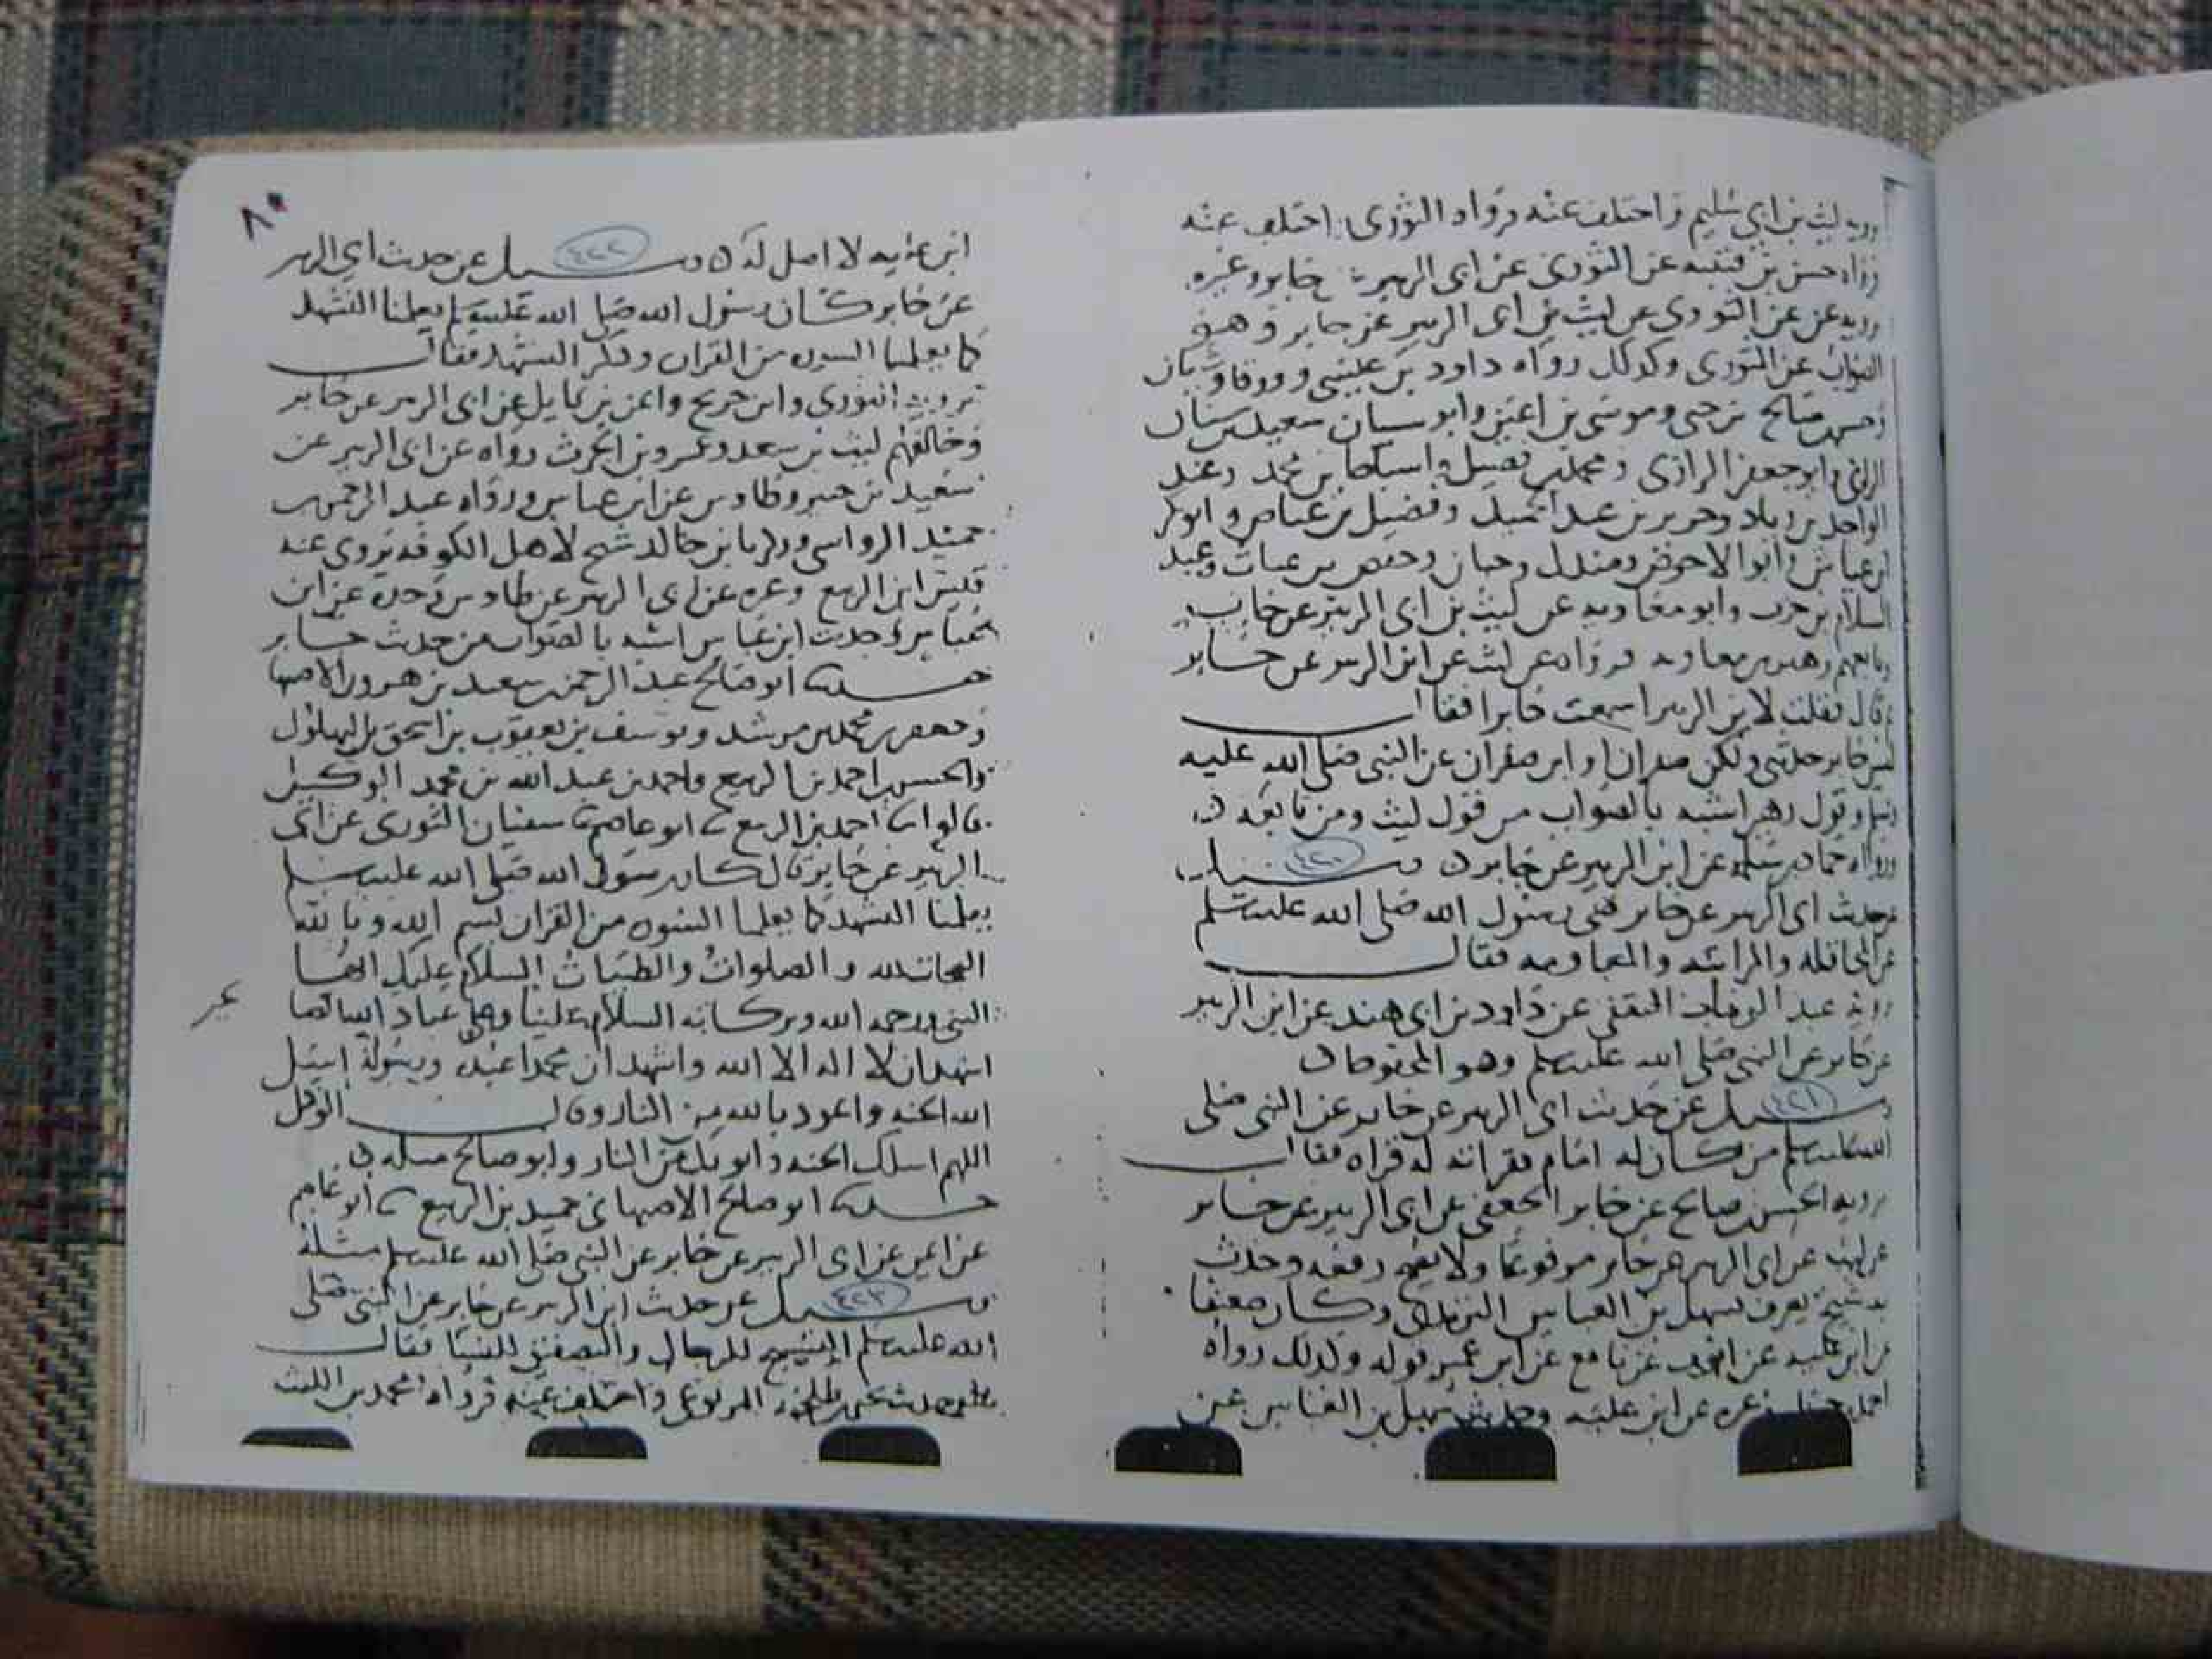 ليث بن ابي سليم واختلف عنه فرواه الثوري اختلف عنه
حسن بن قتيبة عن الثوري عن ابي الزبير جابر وغيره
عن الثوري عن ليث عن ابي الزبير عن جابر وهو
الصواب عن الثوري وكذلك رواه داود بن عيسى وورقا وشيبان
صالح بن حي وموسى بن اعين وابو سنان سعيد بن سنان
ابو جعفر الرازي ومحمد بن فضيل واسباط بن محمد وعبد
الواحد بن زياد وجرير بن عبد الحميد وفضيل بن عياض وابو بكر
بن عياش وابو الاحوص ومندل وحبان وحفص بن غياث وعبد
السلام بن حرب وابو معاويه عن ليث بن ابي الزبير عن جابر
زهير بن معاويه فرواه عن ليث عن ابي الزبير عن جابر
قال فقلت لابي الزبير اسمعت جابرا فقال
ليس جابر حدثني ولكن صفوان او ابن صفوان عن النبي صلى الله عليه
وقول زهير اشبه بالصواب من قول ليث ومن تابعه
ورواه حماد بن سلمه عن ابي الزبير عن جابر ٤٢٠ وسئل
عن حديث ابي الزبير عن جابر نهى رسول الله صلى الله عليه وسلم
عن المحاقله والمزابنه والمعاومه فقال
يرويه عبد الوهاب الثقفي عن داود بن ابي هند عن ابي الزبير
عن جابر عن النبي صلى الله عليه وسلم وهو المحفوظ
٤٢١ وسئل عن حديث ابي الزبير عن جابر عن النبي صلى
الله عليه وسلم من كان له امام فقراته له قراه فقال
يرويه الحسن بن صالح عن جابر الجعفي عن ابي الزبير عن جابر
عن ابي الزبير عن جابر مرفوعا ولا يصح رفعه وحدث
به شيخ يعرف بسهل بن العباس الترمذي وكان ضعيفا
عن ابن عليه عن ايوب عن نافع عن ابن عمر قوله وكذلك رواه
احمد بن حنبل وغيره عن ابن عليه وحديث سهل بن العباس عن
٨٠
ابن عليه لا اصل له ٤٢٢ وسئل عن حديث ابي الزبير
عن جابر كان رسول الله صلى الله عليه وسلم يعلمنا التشهد
كما يعلمنا السوره من القران وذكر التشهد فقال
يرويه الثوري وابن جريج وايمن بن نابل عن ابي الزبير عن جابر
وخالفهم ليث بن سعد وعمرو بن الحرث رواه عن ابي الزبير عن
سعيد بن جبير وطاوس عن ابن عباس ورواه عبد الرحمن بن
حميد الرواسي وزكريا بن خالد شيخ لاهل الكوفه يروي عنه
قيس ابن الربيع وغيره عن ابي الزبير عن طاوس وحده عن ابن
عباس وحديث ابن عباس اشبه بالصواب من حديث جابر
حدثنا ابو صالح عبد الرحمن بن سعيد بن هرون الاصبها
وجعفر بن محمد بن مرشد ويوسف بن يعقوب بن اسحق بن البهلول
والحسين بن احمد بن الربيع واحمد بن عبد الله بن محمد الوكيل
قالوا احمد بن الربيع ابو عاصم سفيان الثوري عن ابي
الزبير عن جابر قال كان رسول الله صلى الله عليه وسلم
يعلمنا التشهد كما يعلمنا السوره من القران بسم الله وبالله
التحيات لله والصلوات والطيبات السلام عليك ايها
النبي ورحمه الله وبركاته السلام علينا وعلى عباد الله
اشهد ان لا اله الا الله واشهد ان محمدا عبده ورسوله اسئل
الله الجنه واعوذ بالله من النار وقال الوكيل
اللهم اسلك الجنه واعوذ بك من النار وابو صالح مثله
حدثنا ابو صالح الاصبهاني حميد بن الربيع ابو عاصم
عن ايمن عن ابي الزبير عن جابر عن النبي صلى الله عليه وسلم مثله
٤٢٣ وسئل عن حديث ابي الزبير عن جابر عن النبي صلى
الله عليه وسلم التسبيح للرجال والتصفيق للنسا فقال
واختلف عنه فرواه محمد بن الليث